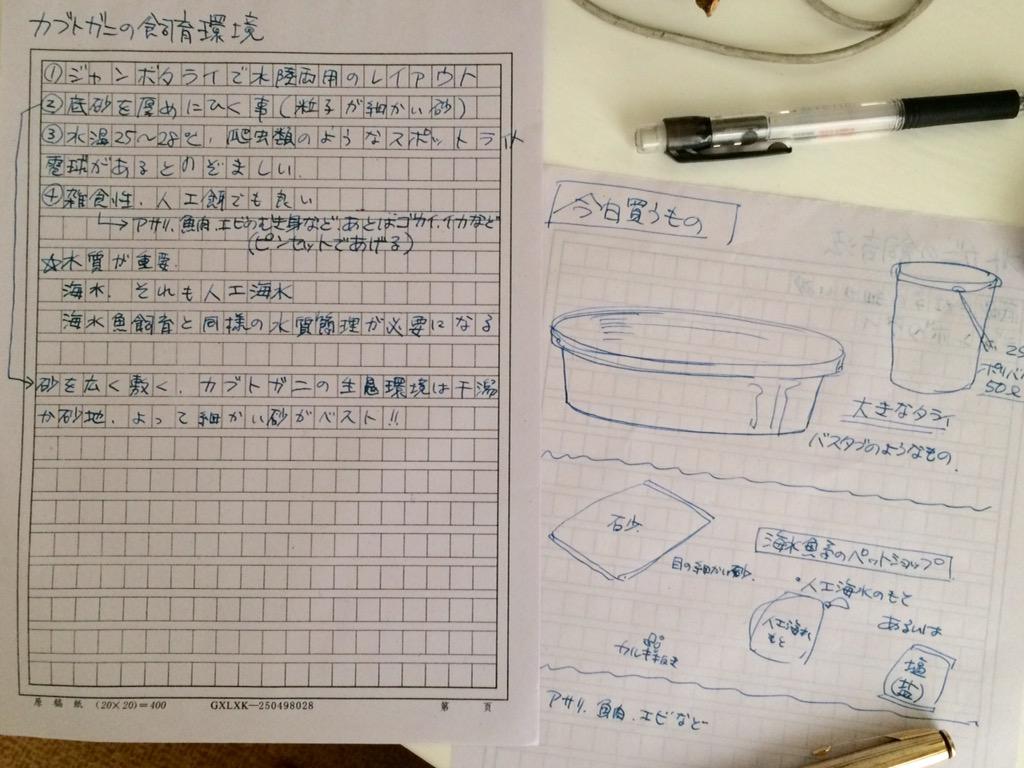 カブトガニの飼育環境
①ジャンボタライで水陸両用のレイアウト
②底砂を厚めにひく事(粒子が細かい砂)
③水温25〜28℃,爬虫類のようなスポットライト
電球があるとのぞましい.
④雑食性.人工餌でも良い
→アサリ.魚肉.エビのむき身など,あとはゴカイ.イカなど
(ピンセットであげる)
☆水質が重要.
海水.それも人工海水
海水魚飼育と同様の水質管理が必要になる
砂を広く敷く.カブトガニの生息環境は干潟
か砂地.よって細かい砂がベスト!!
原稿紙 (20×20)=400 GXLXK—250498028 第 頁
今日買うもの
50ℓ
大きなタライ
バスタブのようなもの.
砂
目の細かい砂.
海水魚系のペットショップ
・人工海水のもと
人工海水
もと
あるいは
塩
(盐)
カルキ抜き
アサリ.魚肉.エビなど